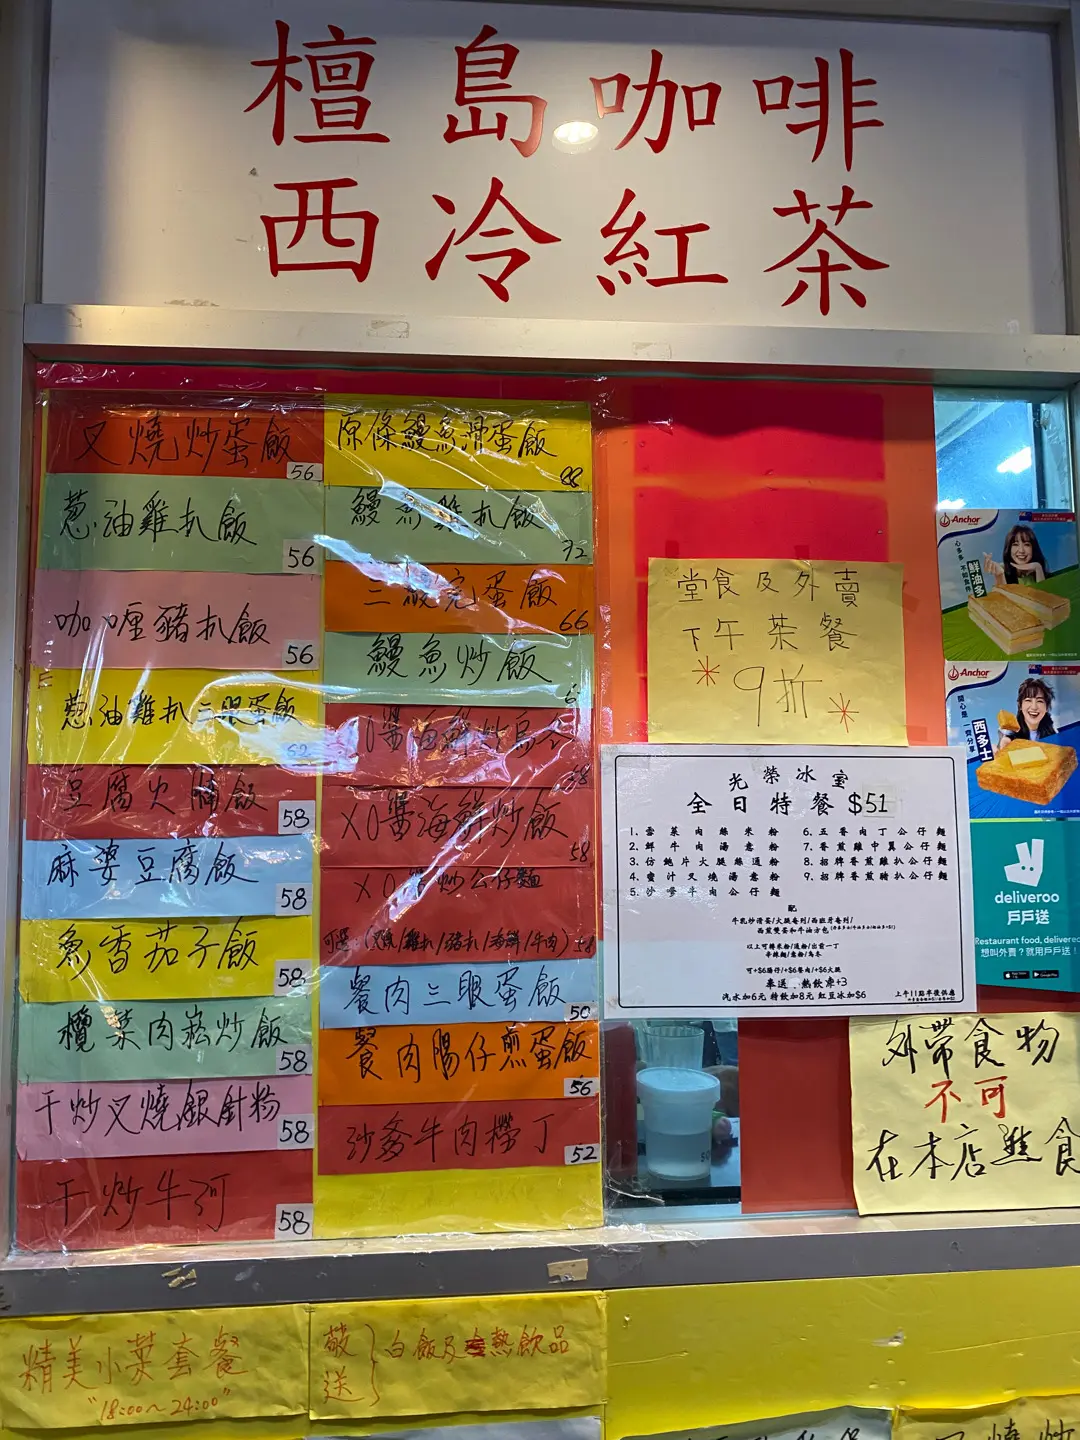 檀島咖啡
西冷紅茶
叉燒炒蛋飯 56
蔥油雞扒飯 56
咖喱豬扒飯 56
蔥油雞扒三眼蛋飯 62
豆腐火腩飯 58
麻婆豆腐飯 58
魚香茄子飯 58
欖菜肉崧炒飯 58
干炒叉燒銀針粉 58
干炒牛河 58
原條鰻魚滑蛋飯
鰻魚雞扒飯 72
飯 66
鰻魚炒飯
醬海鮮炒烏冬
XO醬海鮮炒飯 58
XO醬炒公仔麵
可選 /雞扒/豬扒/海鮮/牛肉)
餐肉三眼蛋飯 50
餐肉腸仔煎蛋飯 56
沙爹牛肉撈丁 52
堂食及外賣
下午茶餐
*9折*
光榮冰室
全日特餐 $51
1. 雪菜肉絲米粉
2. 鮮牛肉湯意粉
3. 仿鮑片火腿絲通粉
4. 蜜汁叉燒湯意粉
5. 沙嗲牛肉公仔麵
6. 五香肉丁公仔麵
7. 香煎雞中翼公仔麵
8. 招牌香煎雞扒公仔麵
9. 招牌香煎豬扒公仔麵
配
牛乳炒滑蛋/火腿奄列/西班牙奄列/
西煎雙蛋和牛油方包
以上可轉米粉/通粉/出前一丁
辛辣麵/意粉/烏冬
可+$6腸仔/+$6餐肉/+$6火腿
奉送 : 熱飲凍+3
汽水加6元 特飲加8元 紅豆冰加$6
上午11點半後供應
Anchor
心多多 不如食件
鮮油多
Anchor
開心是一齊分享
西多士
deliveroo
戶戶送
Restaurant food, delivered
想叫外賣？就用戶戶送！
外帶食物
不可
在本店進食
精美小菜套餐
"18:00~24:00"
敬送 白飯及熱飲品